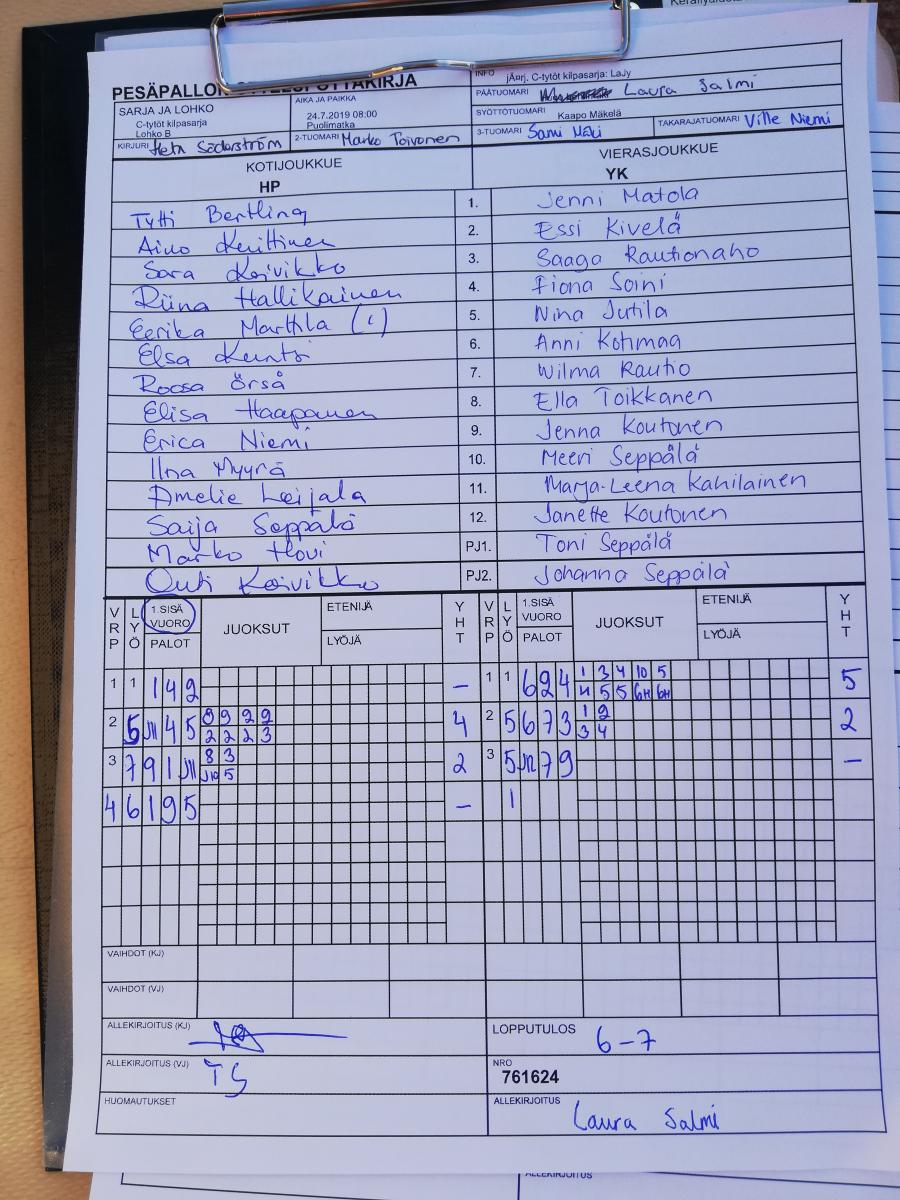 PESÄPALLON
INFO jÄurj. C-tytöt kilpasarja: LaJy
SARJA JA LOHKO
C-tytöt kilpasarja
Lohko B
AIKA JA PAIKKA
24.7.2019 08:00
Puolimatka
PÄÄTUOMARI Laura Salmi
SYÖTTÖTUOMARI Kaapo Mäkelä
KIRJURI Heta Söderström
2-TUOMARI Marko Toivonen
3-TUOMARI Sami
TAKARAJATUOMARI Ville Niemi
KOTIJOUKKUE
HP
VIERASJOUKKUE
YK
Tytti Bertling 1. Jenni Matola
Aino 2. Essi Kivelä
Sara Koivikko 3. Saaga Rautionaho
Riina Hallikainen 4. Fiona Soini
Eerika Marttila 5. Nina Jutila
Elsa 6. Anni Kohmaa
Roosa Örså 7. Wilma Rautio
Elisa Haapanen 8. Ella Toikkanen
Erica Niemi 9. Jenna Koutonen
Ilna Myyrä 10. Meeri Seppälä
Amelie Leijala 11. Marja-Leena Kahilainen
Saija Seppälä 12. Janette Koutonen
Marko Hovi PJ1. Toni Seppälä
Outi Koivikko PJ2. Johanna Seppälä
VRP LYÖ 1.SISÄ VUORO PALOT JUOKSUT ETENIJÄ LYÖJÄ YHT VRP LYÖ 1.SISÄ VUORO PALOT JUOKSUT ETENIJÄ LYÖJÄ YHT
1 1 1 4 9 – 1 1 6 2 4 1 3 4 10 5 5
5 5
2 5 4 5 8 9 2 9 4 2 5 6 7 3 1 2 2
2 2 2 3 3 4
3 7 9 1 8 3 2 3 5 7 9 –
5
4 6 1 9 5 – 1
VAIHDOT (KJ)
VAIHDOT (VJ)
ALLEKIRJOITUS (KJ)
LOPPUTULOS 6-7
ALLEKIRJOITUS (VJ) TS
NRO
761624
HUOMAUTUKSET
ALLEKIRJOITUS Laura Salmi
ALLEKIRJOITUS